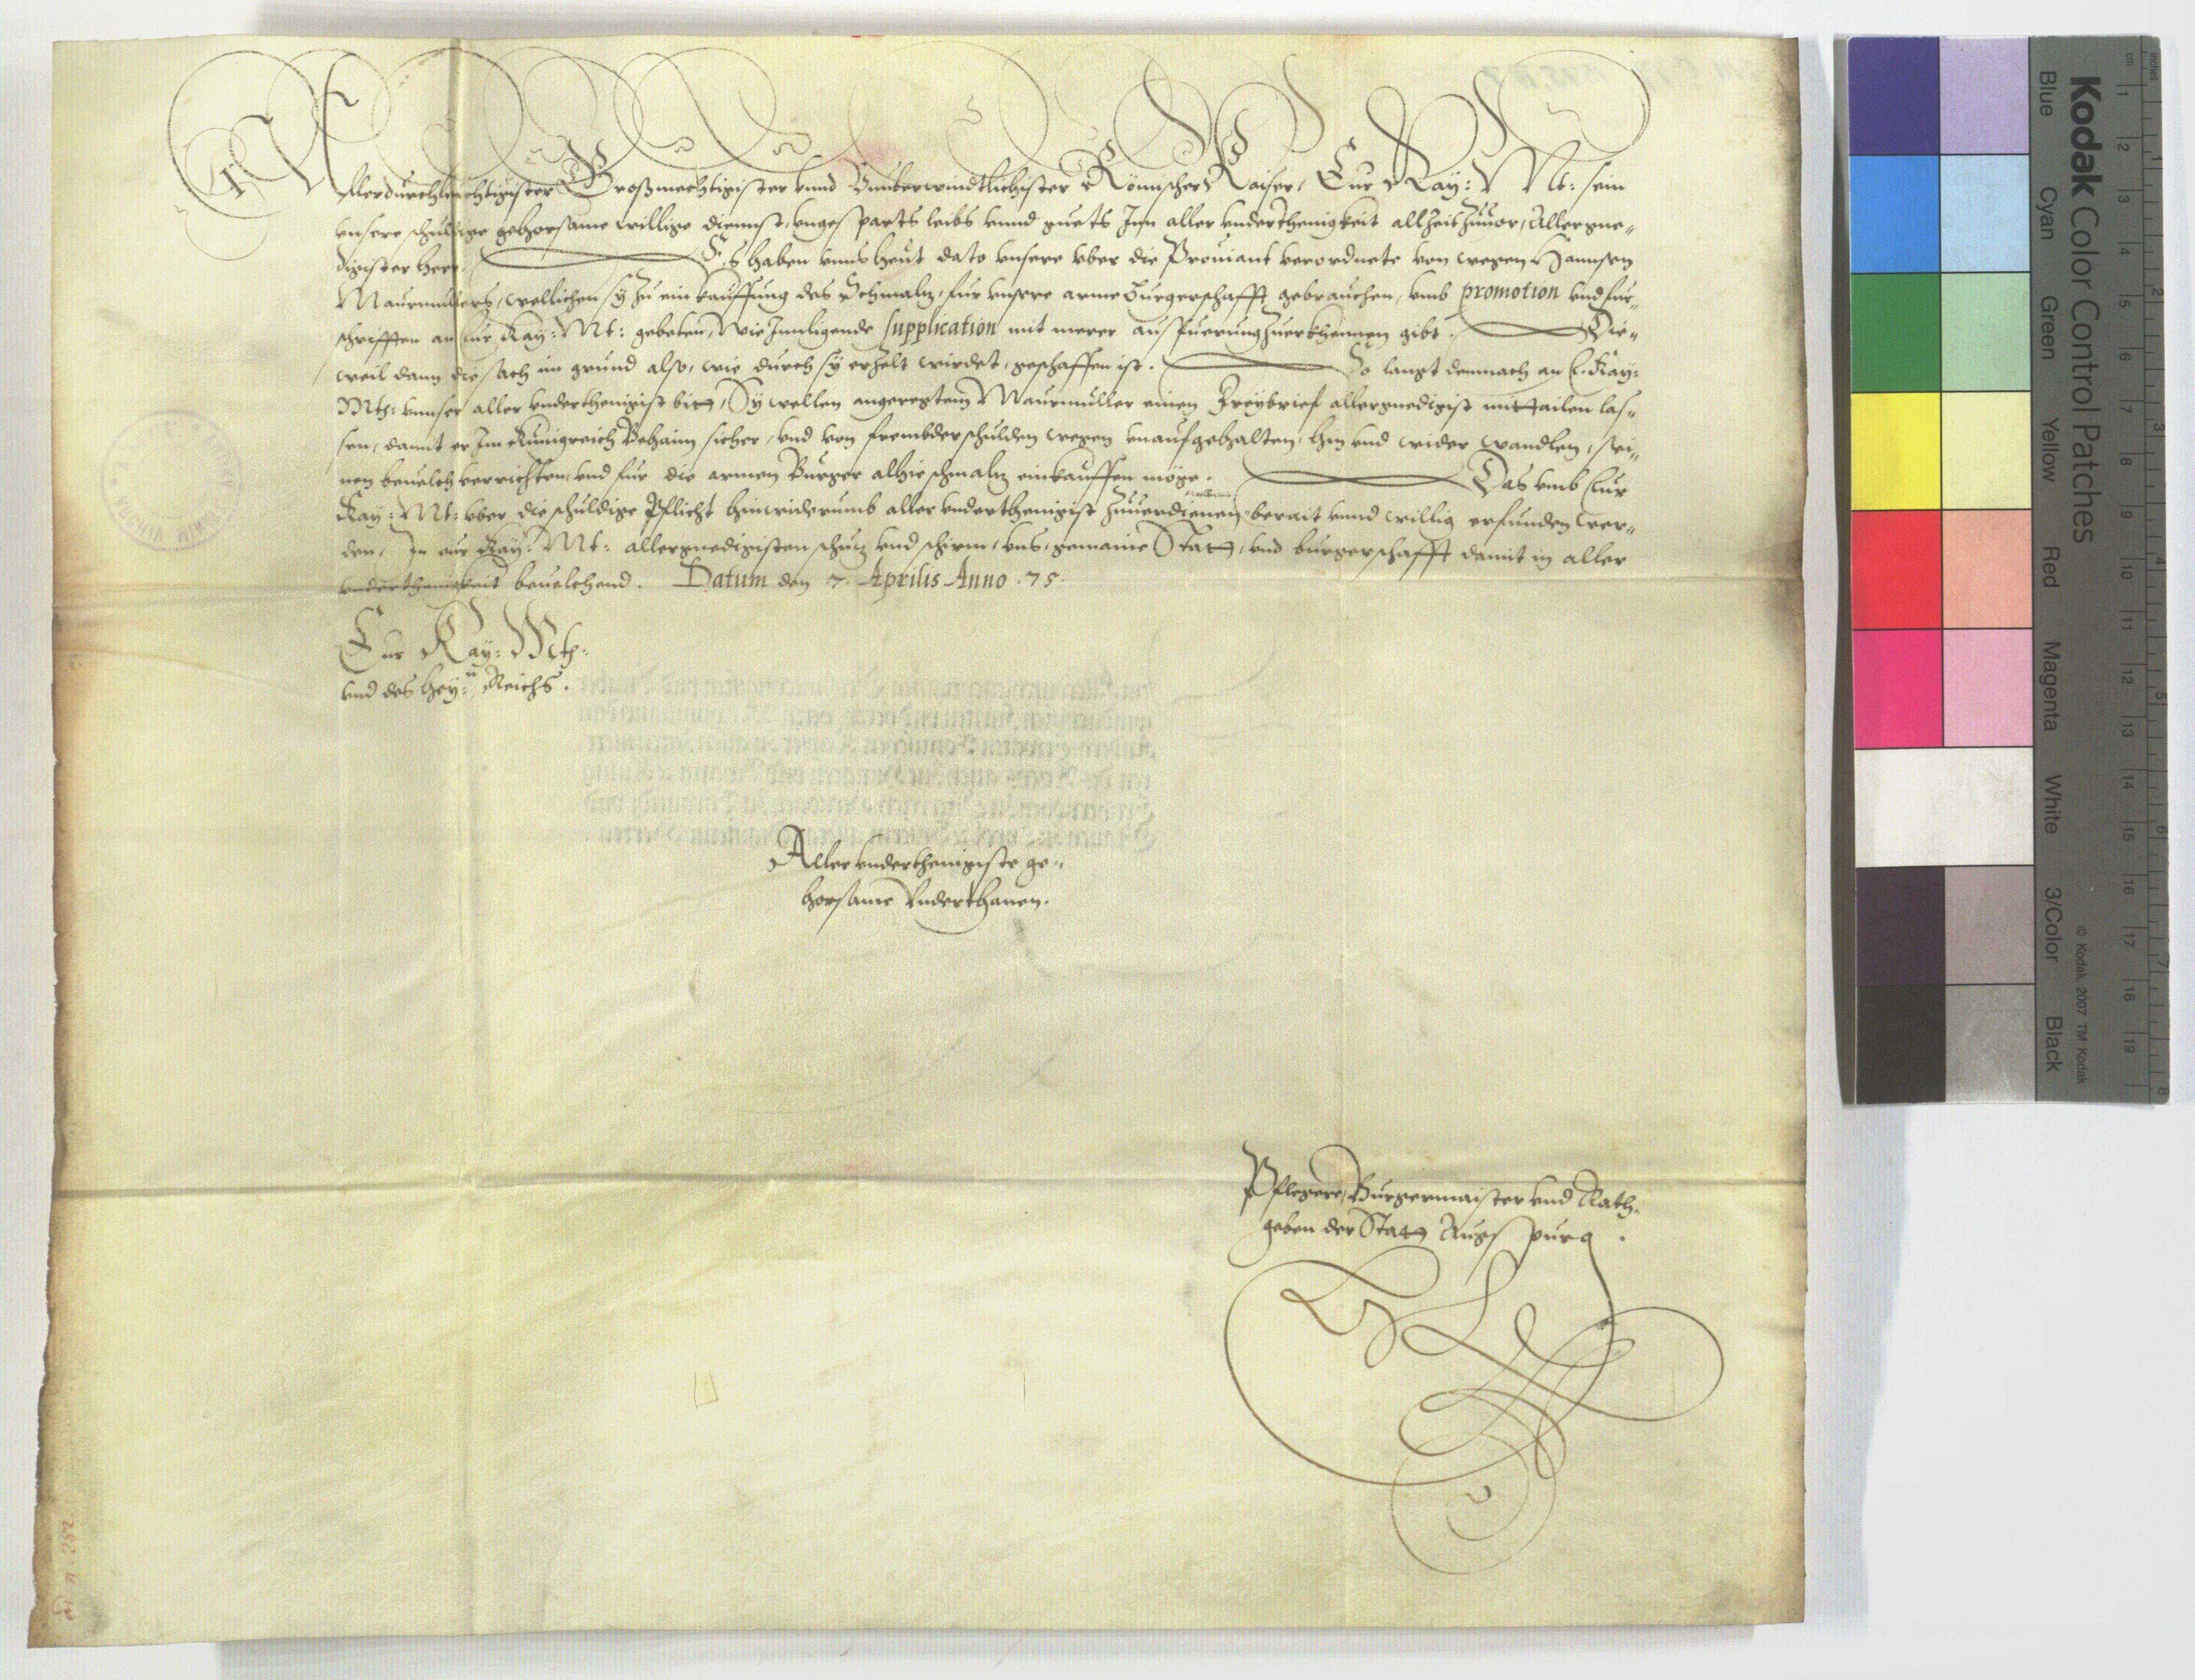 Allerdurchleuchtigister Großmechtigister vnnd Vnnberwindtlichister Römischer Kaiser, Eur Kay: Mt: sein
vnsere schuldige gehorsame willige dienst, vngesparts leibs vnnd guets Inn aller vnderthenigkeit allzeit zuuor, Allergne„
digister herr. Es haben vnns heut dato vnsere vber die Prouiant verordnete von wegen Hannsen
Maurmullers, wellichen sÿ zu einkauffung des Schmaltz, fur vnsere arme Burgerschafft gebrauchen, vmb promotion vnd fur„
schrifften an Eur Kay: Mt: gebeten, wie Innligende supplication mit merer ausfuerung zuerkhennen gibt. Die„
weil dann die sach im grund also, wie durch sÿ erzelt wirdet, geschaffen ist. So langt demnach an E. Kay:
Mth: vnnser aller vnderthenigist bitt, Sÿ wellen angeregtem Maurmuller einen Freÿbrief allergnedigist mittailen las„
sen, damit er Im Kunigreich Behaim sicher, vnd von frembder schulden wegen vnaufgehalten, hin vnd wider wandlen, sei„
nen beuelch verrichten, vnd fur die armen Burger alhie schmaltz einkauffen möge. Das vmb Eur
Kay: Mt: vber die schuldige Pflicht hinwiderumb aller vnderthenigist zuuerdienen berait vnnd willig erfunden wer„
den, In eur Kaÿ: Mt: allergnedigisten schutz vnd schirm, vns, gemaine Statt, vnd burgerschafft damit in aller
vnderthenigkeit beuelchend. Datum den 7. Aprilis Anno .75.
Eur Kay: Mth:
vnd des heÿ:n Reichs.
Aller vnderthenigiste ge„
horsame Vnderthanen.
Pflegere, Burgermaister vnd Rath„
geben der Statt Augspurg .
Kodak Color Control Patches
Blue Cyan Green Yellow Red Magenta White 3/Color Black
© Kodak, 2007 TM: Kodak
cm 1 2 3 4 5 6 7 8 9 10 11 12 13 14 15 16 17 18 19
inches 1 2 3 4 5 6 7 8